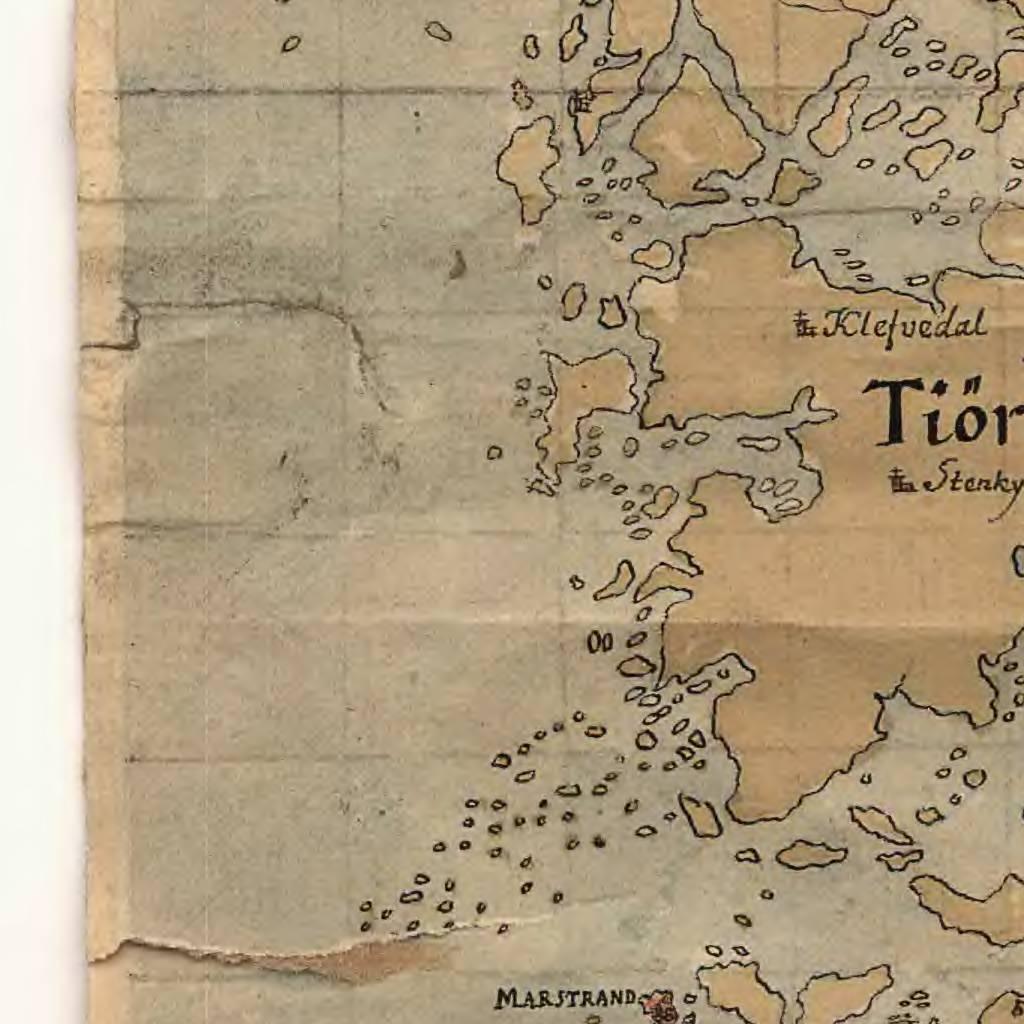 Klefvedal
Tiör
Stenky
MARSTRAND